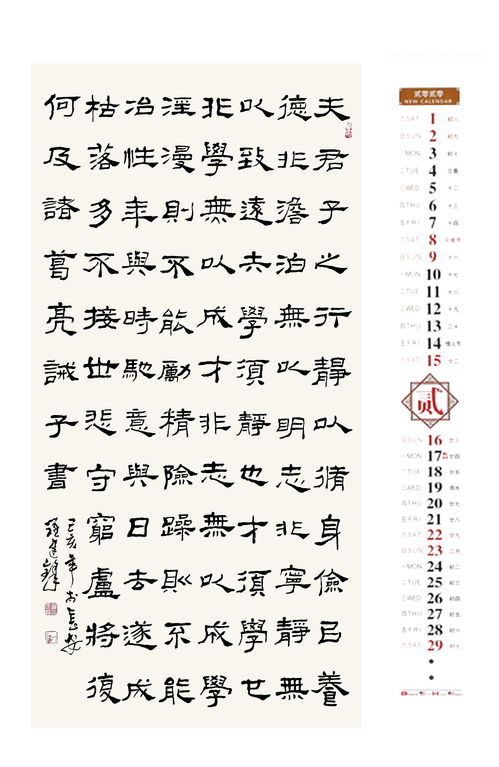 夫君子之行靜以脩身儉㠯養
德非澹泊無以明志非寧靜無
以致遠夫學須靜也才須學也
非學無以成才非志無以成學
淫漫則不能勵精險躁則不能
冶性年與時馳意與日去遂成
枯落多不接世悲守窮廬將復
何及諸葛亮誡子書
己亥年於長安
贰零贰零
NEW CALENDAR
六 SAT 1 初八
日 SUN 2 初九
一 MON 3 初十
二 TUE 4 立春
三 WED 5 十二
四 THU 6 十三
五 FRI 7 十四
六 SAT 8 元宵节
日 SUN 9 十六
一 MON 10 十七
二 TUE 11 十八
三 WED 12 十九
四 THU 13 二十
五 FRI 14 情人节
六 SAT 15 廿二
贰
日 SUN 16 廿三
一 MON 17 廿四
二 TUE 18 廿五
三 WED 19 雨水
四 THU 20 廿七
五 FRI 21 廿八
六 SAT 22 廿九
日 SUN 23 二月
一 MON 24 初二
二 TUE 25 初三
三 WED 26 初四
四 THU 27 初五
五 FRI 28 初六
六 SAT 29 初七